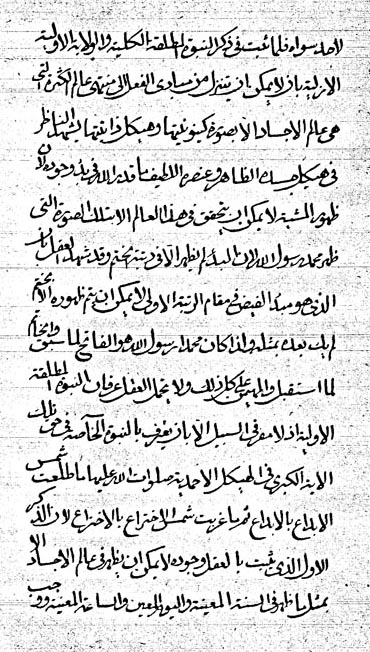 لاحد سواه فلما ثبت في ذكر النبوة المطلقة الكلية والولاية الاولية
الازلية بان لا يمكن ان يتنزل من مبادي الفعل الى منتهى عالم الكثرة التي
هي عالم الاجساد الا بصورة كينونيتها وهيكل ذاتيتها يشهد الناظر
في هيكل جسده الظاهر وعنصره اللطيف بان الله فريد وجوده لان
ظهور المشية لا يمكن ان يتحقق في هذا العالم الا بتلك الصورة التي
ظهر محمد رسول الله لان البدء لم يظهر الا في رتبة الختم وقد شهد العقل بان
الذي هو مبدء الفيض في مقام الرتبة الاولى لا يمكن ان يتم ظهوره الا بختم
لم يك بعده مثله ولذا كان محمد رسول الله هو الفاتح لما سبق والخاتم
لما استقبل والمهيمن على كل ذلك ولا يحمل العقل عرفان النبوة المطلقة
الاولية اذ لا مفر في السبيل الا بان يعرف بالنبوة الخاصة في حق تلك
الاية الكبرى في الهيكل الاحمدية صلوات الله عليها ما طلعت شمس
الابداع بالابداع ثم ما غربت شمس الاختراع بالاختراع لان الذكر
الاول الذي ثبت بالعقل وجوده لا يمكن ان يظهر في عالم الاجساد الا
بمثل ما ظهر في السنة المعينة واليوم المعين والساعة المعينة ووجب